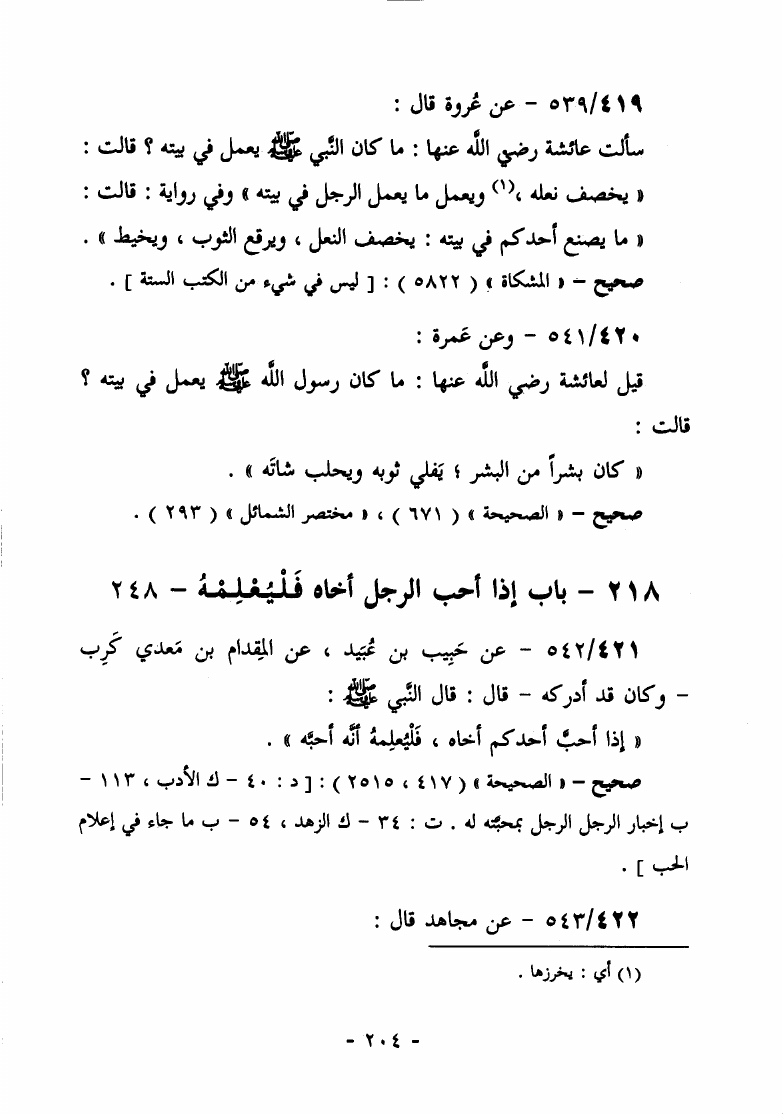 ٥٣٩/٤١٩ – عن عُروة قال :
سألت عائشة رضي اللَّه عنها : ما كان النَّبي ﷺ يعمل في بيته ؟ قالت :
« يخصف نعله ،(١) ويعمل ما يعمل الرجل في بيته » وفي رواية : قالت :
« ما يصنع أحدكم في بيته : يخصف النعل ، ويرقع الثوب ، ويخيط » .
صحيح – « المشكاة » ( ٥٨٢٢ ) : [ ليس في شيء من الكتب الستة ] .
٥٤١/٤٢٠ – وعن عَمرة :
قيل لعائشة رضي اللَّه عنها : ما كان رسول اللَّه ﷺ يعمل في بيته ؟
قالت :
« كان بشراً من البشر ؛ يَفلي ثوبه ويحلب شاتَه » .
صحيح – « الصحيحة » ( ٦٧١ ) ، « مختصر الشمائل » ( ٢٩٣ ) .
٢١٨ – باب إذا أحب الرجل أخاه فَلْيُعْلِمْهُ – ٢٤٨
٥٤٢/٤٢١ – عن حَبِيب بن عُبَيد ، عن المِقدام بن مَعدي كَرِب
– وكان قد أدركه – قال : قال النَّبي ﷺ :
« إذا أحبَّ أحدكم أخاه ، فَلْيُعلِمهُ أنَّه أحبَّه » .
صحيح – « الصحيحة » ( ٤١٧ ، ٢٥١٥ ) : [ د : ٤٠ – ك الأدب ، ١١٣ –
ب إخبار الرجل الرجل بمحبَّته له . ت : ٣٤ – ك الزهد ، ٥٤ – ب ما جاء في إعلام
الحب ] .
٥٤٣/٤٢٢ – عن مجاهد قال :
(١) أي : يخرزها .
– ٢٠٤ –